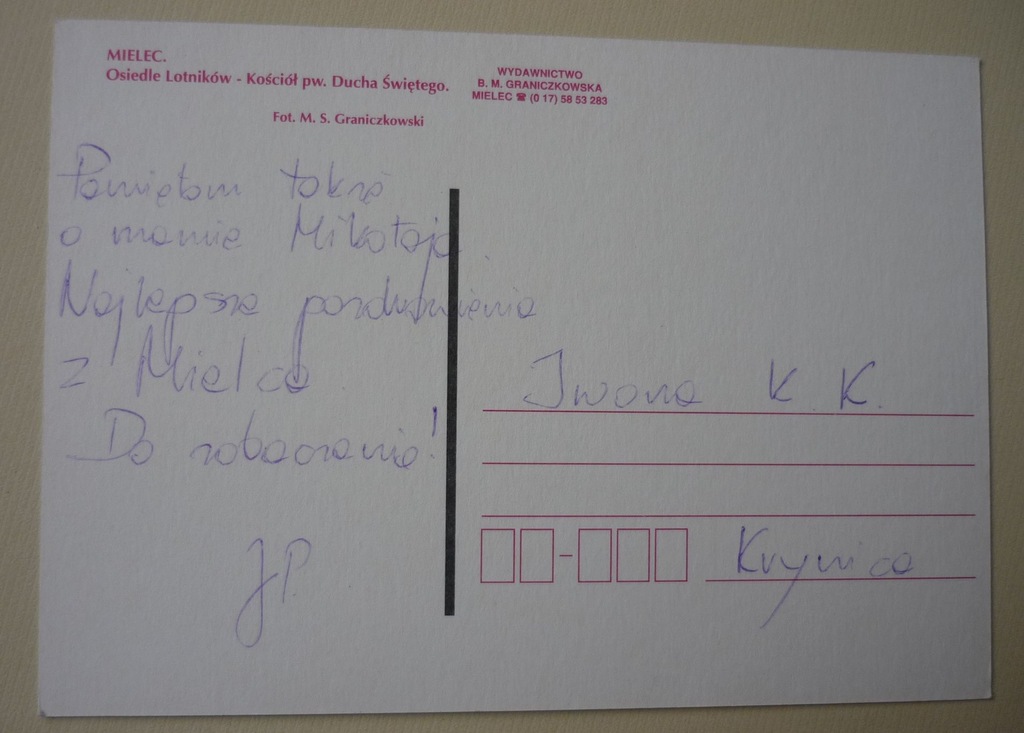 MIELEC.
Osiedle Lotników - Kościół pw. Ducha Świętego.
Fot. M. S. Graniczkowski
WYDAWNICTWO
B. M. GRANICZKOWSKA
MIELEC ☎ (0 17) 58 53 283
Pamiętam także
o mamie Mikołaja.
Najlepsze pozdrowienia
z Mielca.
Do zobaczenia!
JP.
Iwona K. K.
Krynica